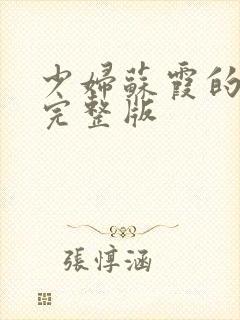 少婦蘇霞的
完整版
張惇涵